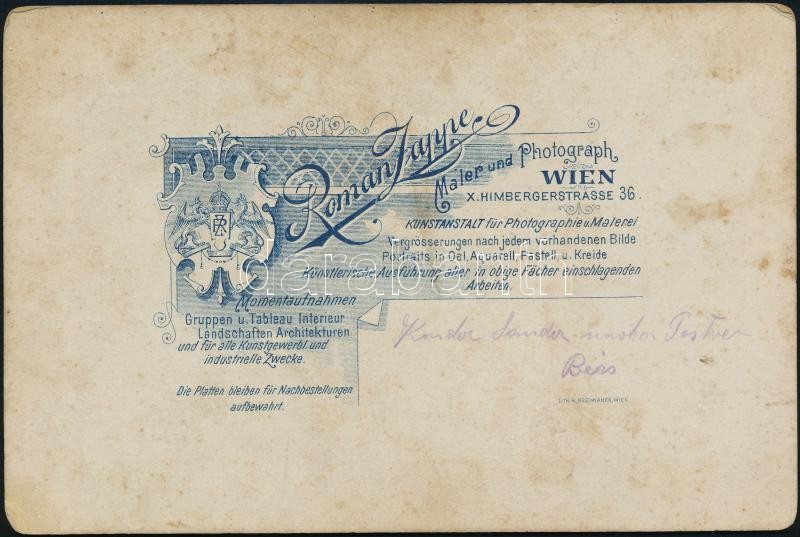 Roman Zappe
Maler und Photograph
WIEN
X. HIMBERGERSTRASSE 36.
KUNSTANSTALT für Photographie u. Malerei
Vergrösserungen nach jedem vorhandenen Bilde
Portraits in Oel, Aquarell, Pastell, u. Kreide
Künstlerische Ausführung aller in obige Fächer einschlagenden
Arbeiten.
darabanth
Momentaufnahmen
Gruppen u. Tableau Interieur
Landschaften Architekturen
und für alle Kunstgewerbl. und
industrielle Zwecke.
Die Platten bleiben für Nachbestellungen
aufbewahrt.
Sandor
Bécs
LITH. K. KRZIWANEK, WIEN